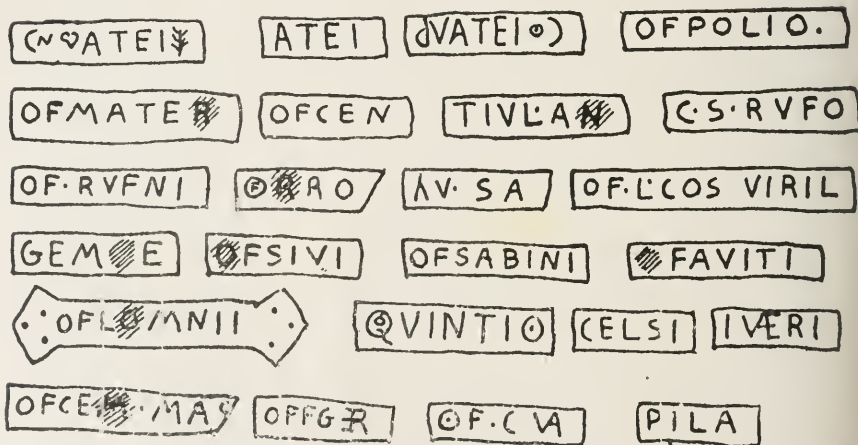 ATEI ATEI VATEI OFPOLIO.
OFMATER OFCEN TIVL·A C·S·RVFO
OF·RVFNI RO AV·SA OF·L·COS VIRIL
GEM E OFSIVI OFSABINI FAVITI
OFL MNII QVINTIO CELSI IVÆRI
OFCE ·MAS OFFGER OF·CVA PILA